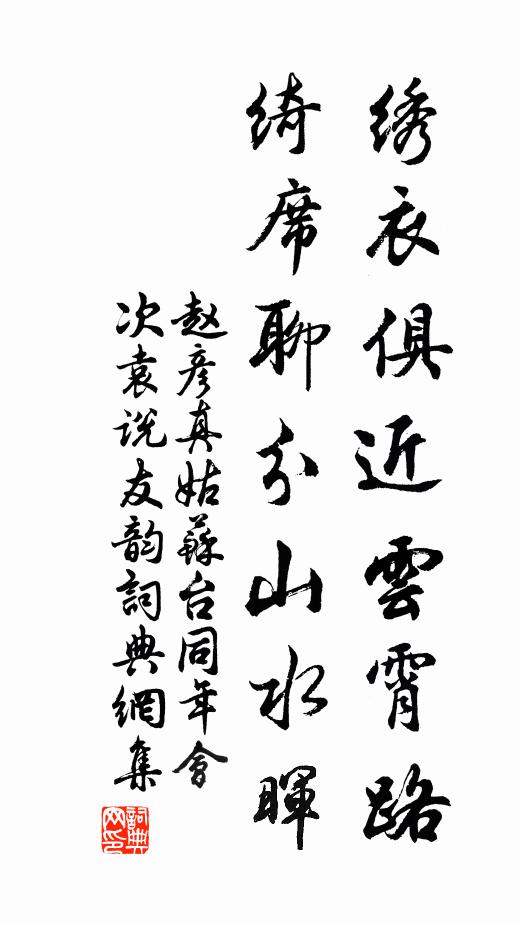 绣衣俱近雲霄路
绮席聊分山水暉
赵彦真姑蘇台同年會
次袁说友韵詞典網集
詞典网印